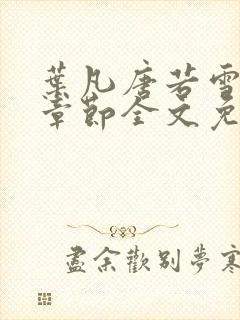 葉凡唐若雪
章節全文免
盡余歡別夢寒